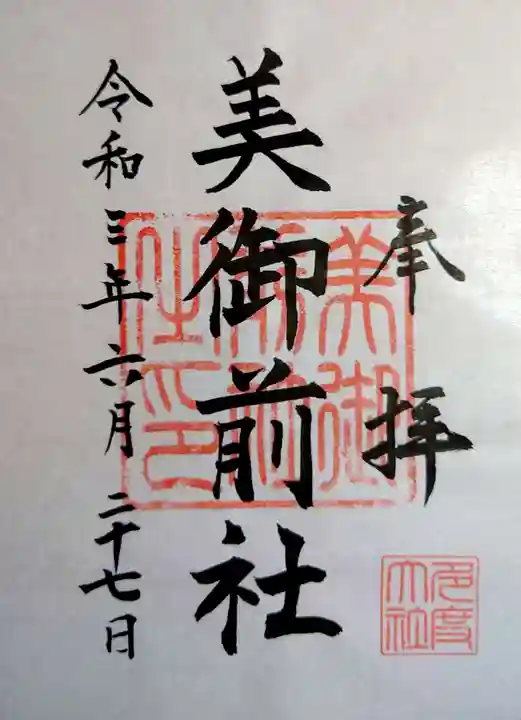 奉拝
美御前社
令和三年六月二十七日
美御前社印
多度大社